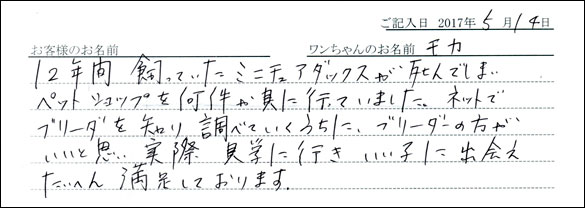 ご記入日 2017年5月14日
お客様のお名前 ワンちゃんのお名前 モカ
12年間 飼っていたミニチュアダックスが 死んでしまい
ペットショップを何件か見に行っていました。ネットで
ブリーダを知り 調べていくうちに、ブリーダーの方が
いいと思い 実際 見学に行き いい子に出会え
たいへん満足しております。